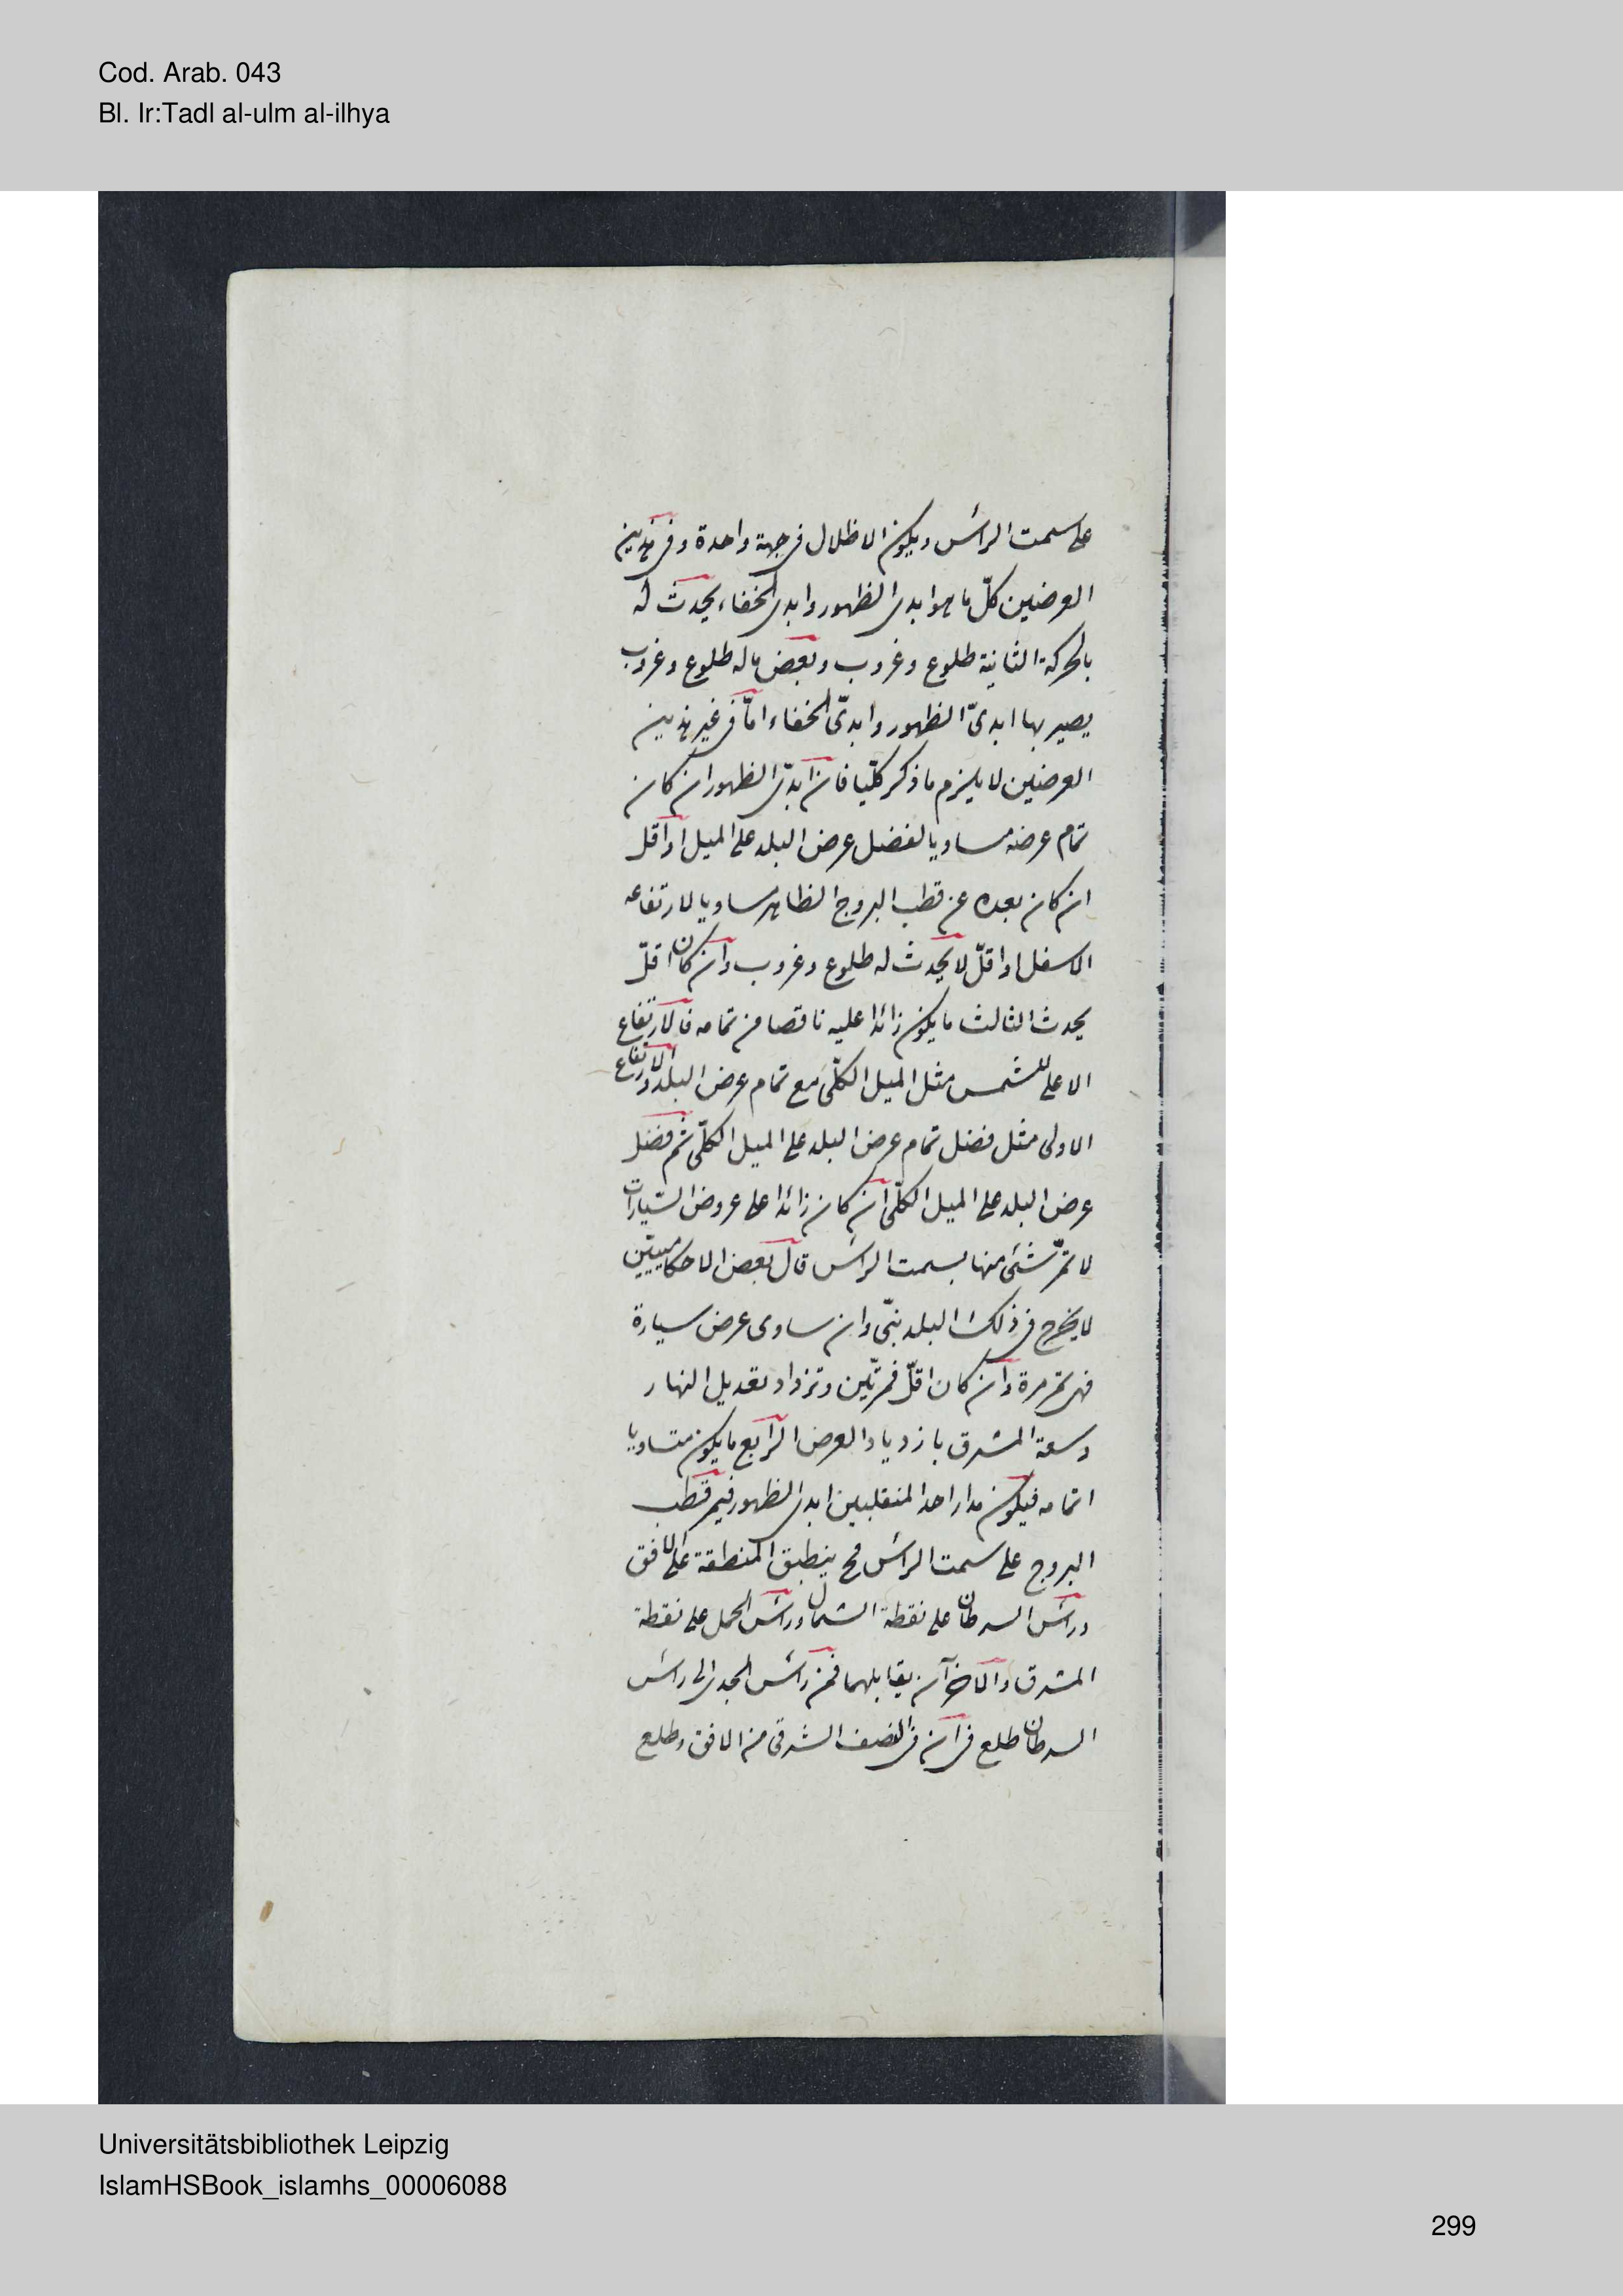 Cod. Arab. 043
Bl. Ir:Tadl al-ulm al-ilhya
على سمت الرأس ويكون الاظلال فى جهة واحدة وفى هذين
العرضين كلّ ما هو ابدى الظهور وابدى الخفاء يحدث له
بالحركة الثانية طلوع وغروب وبعض ماله طلوع وغروب
يصير بها ابدىّ الظهور وابدىّ الخفاء امّا فى غير هذين
العرضين لا يلزم ما ذكر كلّيا فان ابدىّ الظهور ان كان
تمام عرضه مساويا لفضل عرض البلد على الميل او اقل
ان كان بعده عن قطب البروج الظاهر مساويا لارتفاعه
الاسفل او اقلّ لا يحدث له طلوع وغروب وان كان اقلّ
يحدث الثالث ما يكون زائدا عليه ناقصا من تمامه فالارتفاع
الاعلى للشمس مثل الميل الكلّى مع تمام عرض البلد والارتفاع
الاولى مثل فضل تمام عرض البلد على الميل الكلّى ثم فضل
عرض البلد على الميل الكلّى ان كان زائدا على عروض السّيارات
لا تمرّ شئ منها بسمت الرأس قال بعض الاحكاميين
لا يخرج فى ذلك البلد نبىّ وان ساوى عرض سيارة
فهى تمر مرة وان كان اقلّ فمرتّين وتزداد تعديل النهار
وسعة المشرق بازدياد العرض الرابع ما يكون متساويا
اتمامه فيكون مدار احد المنقلبين ابدى الظهور فيمر قطب
البروج على سمت الرأس فح ينطبق المنطقة على الافق
ورأس السرطان على نقطة الشمال ورأس الحمل على نقطة
المشرق والاخرآن يقابلهما فمن رأس الجدى الى رأس
السرطان طلع فى آن فى النصف الشرقى من الافق وطلع
Universitätsbibliothek Leipzig
IslamHSBook_islamhs_00006088
299